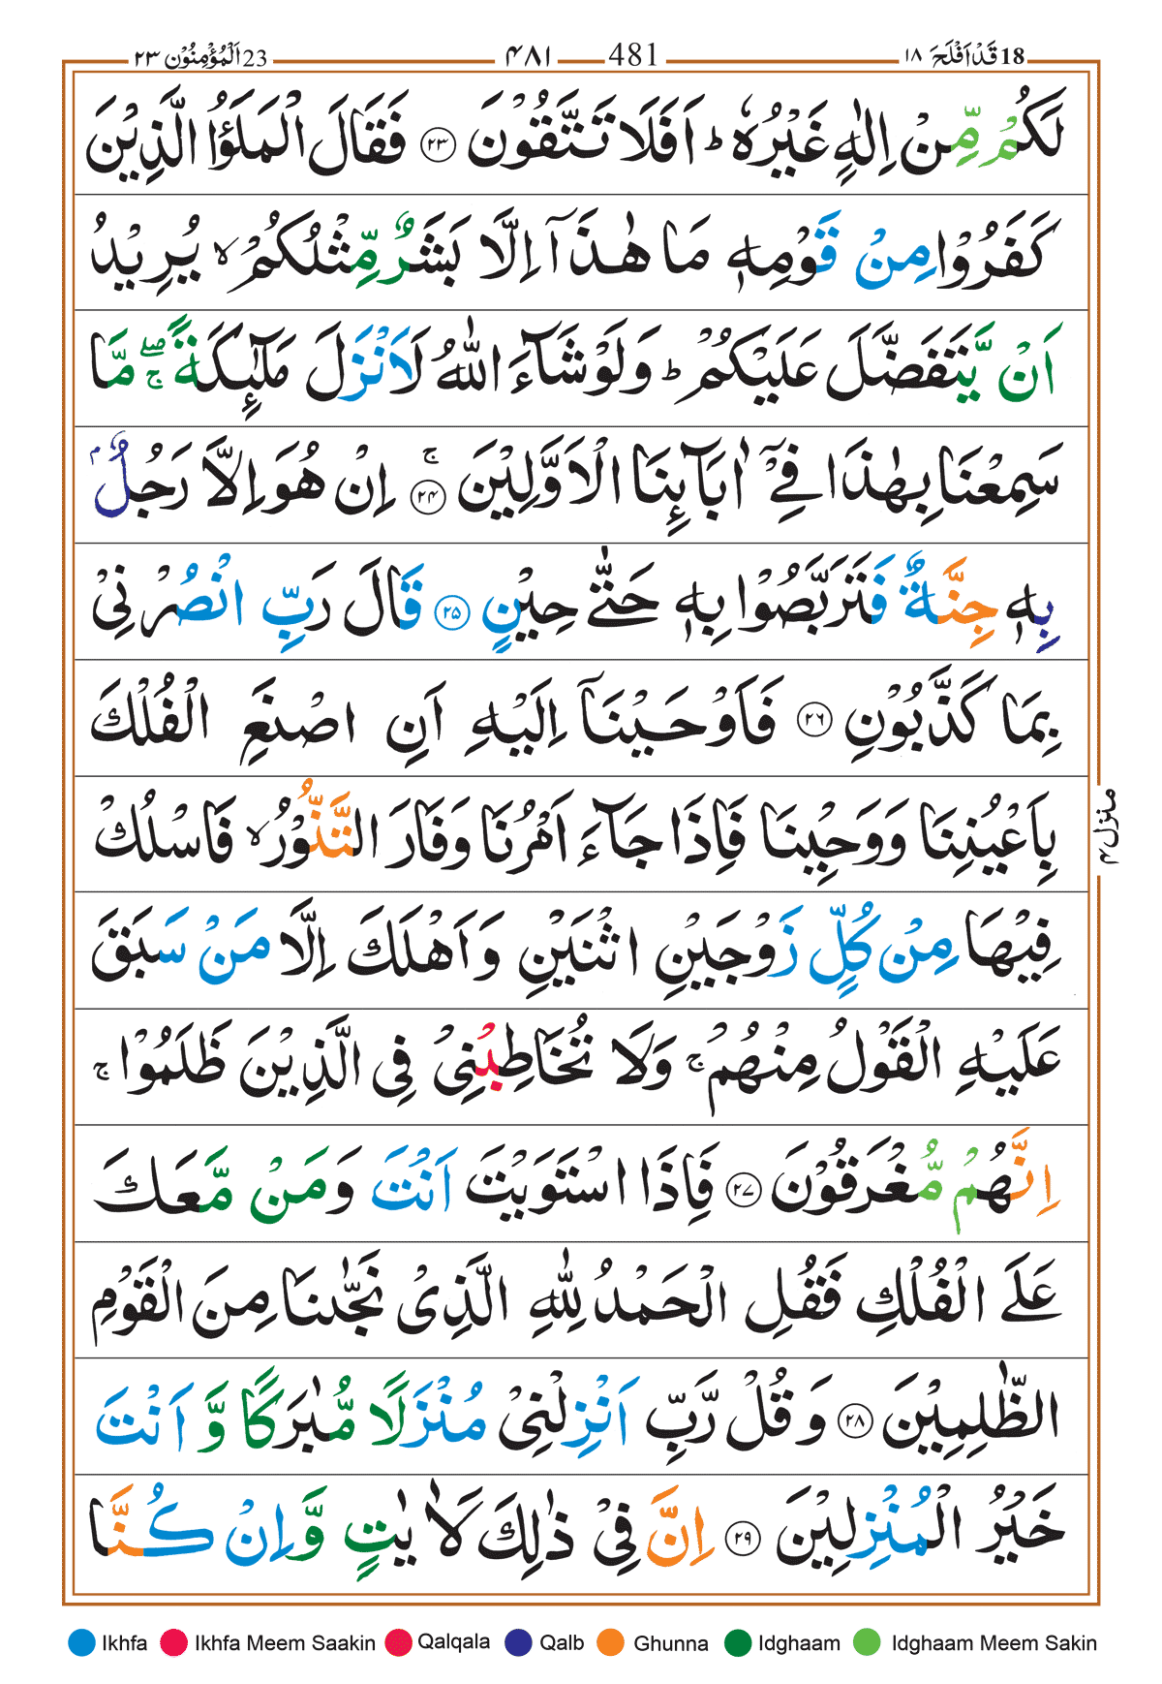 18 قَدْ اَفْلَحَ ١٨ — 481 — ۴۸۱ — 23 اَلْمُؤْمِنُوْن ٢٣
لَكُمْ مِّنْ اِلٰهٍ غَيْرُهٗ ؕ اَفَلَا تَتَّقُوْنَ ۝۲۳ فَقَالَ الْمَلَؤُا الَّذِيْنَ
كَفَرُوْا مِنْ قَوْمِهٖ مَا هٰذَاۤ اِلَّا بَشَرٌ مِّثْلُكُمْ ۙ يُرِيْدُ
اَنْ يَّتَفَضَّلَ عَلَيْكُمْ ؕ وَلَوْ شَآءَ اللّٰهُ لَاَنْزَلَ مَلٰٓئِكَةً ۖۚ مَّا
سَمِعْنَا بِهٰذَا فِيْۤ اٰبَآئِنَا الْاَوَّلِيْنَ ۚ۝۲۴ اِنْ هُوَ اِلَّا رَجُلٌۢ
بِهٖ جِنَّةٌ فَتَرَبَّصُوْا بِهٖ حَتّٰى حِيْنٍ ۝۲۵ قَالَ رَبِّ انْصُرْنِىْ
بِمَا كَذَّبُوْنِ ۝۲۶ فَاَوْحَيْنَاۤ اِلَيْهِ اَنِ اصْنَعِ الْفُلْكَ
بِاَعْيُنِنَا وَوَحْيِنَا فَاِذَا جَآءَ اَمْرُنَا وَفَارَ التَّنُّوْرُ ۙ فَاسْلُكْ
فِيْهَا مِنْ كُلٍّ زَوْجَيْنِ اثْنَيْنِ وَاَهْلَكَ اِلَّا مَنْ سَبَقَ
عَلَيْهِ الْقَوْلُ مِنْهُمْ ۚ وَلَا تُخَاطِبْنِىْ فِى الَّذِيْنَ ظَلَمُوْا ۚ
اِنَّهُمْ مُّغْرَقُوْنَ ۝۲۷ فَاِذَا اسْتَوَيْتَ اَنْتَ وَمَنْ مَّعَكَ
عَلَى الْفُلْكِ فَقُلِ الْحَمْدُ لِلّٰهِ الَّذِىْ نَجّٰىنَا مِنَ الْقَوْمِ
الظّٰلِمِيْنَ ۝۲۸ وَقُلْ رَّبِّ اَنْزِلْنِىْ مُنْزَلًا مُّبٰرَكًا وَّاَنْتَ
خَيْرُ الْمُنْزِلِيْنَ ۝۲۹ اِنَّ فِىْ ذٰلِكَ لَاٰيٰتٍ وَّاِنْ كُنَّا
منزل ۴
Ikhfa Ikhfa Meem Saakin Qalqala Qalb Ghunna Idghaam Idghaam Meem Sakin